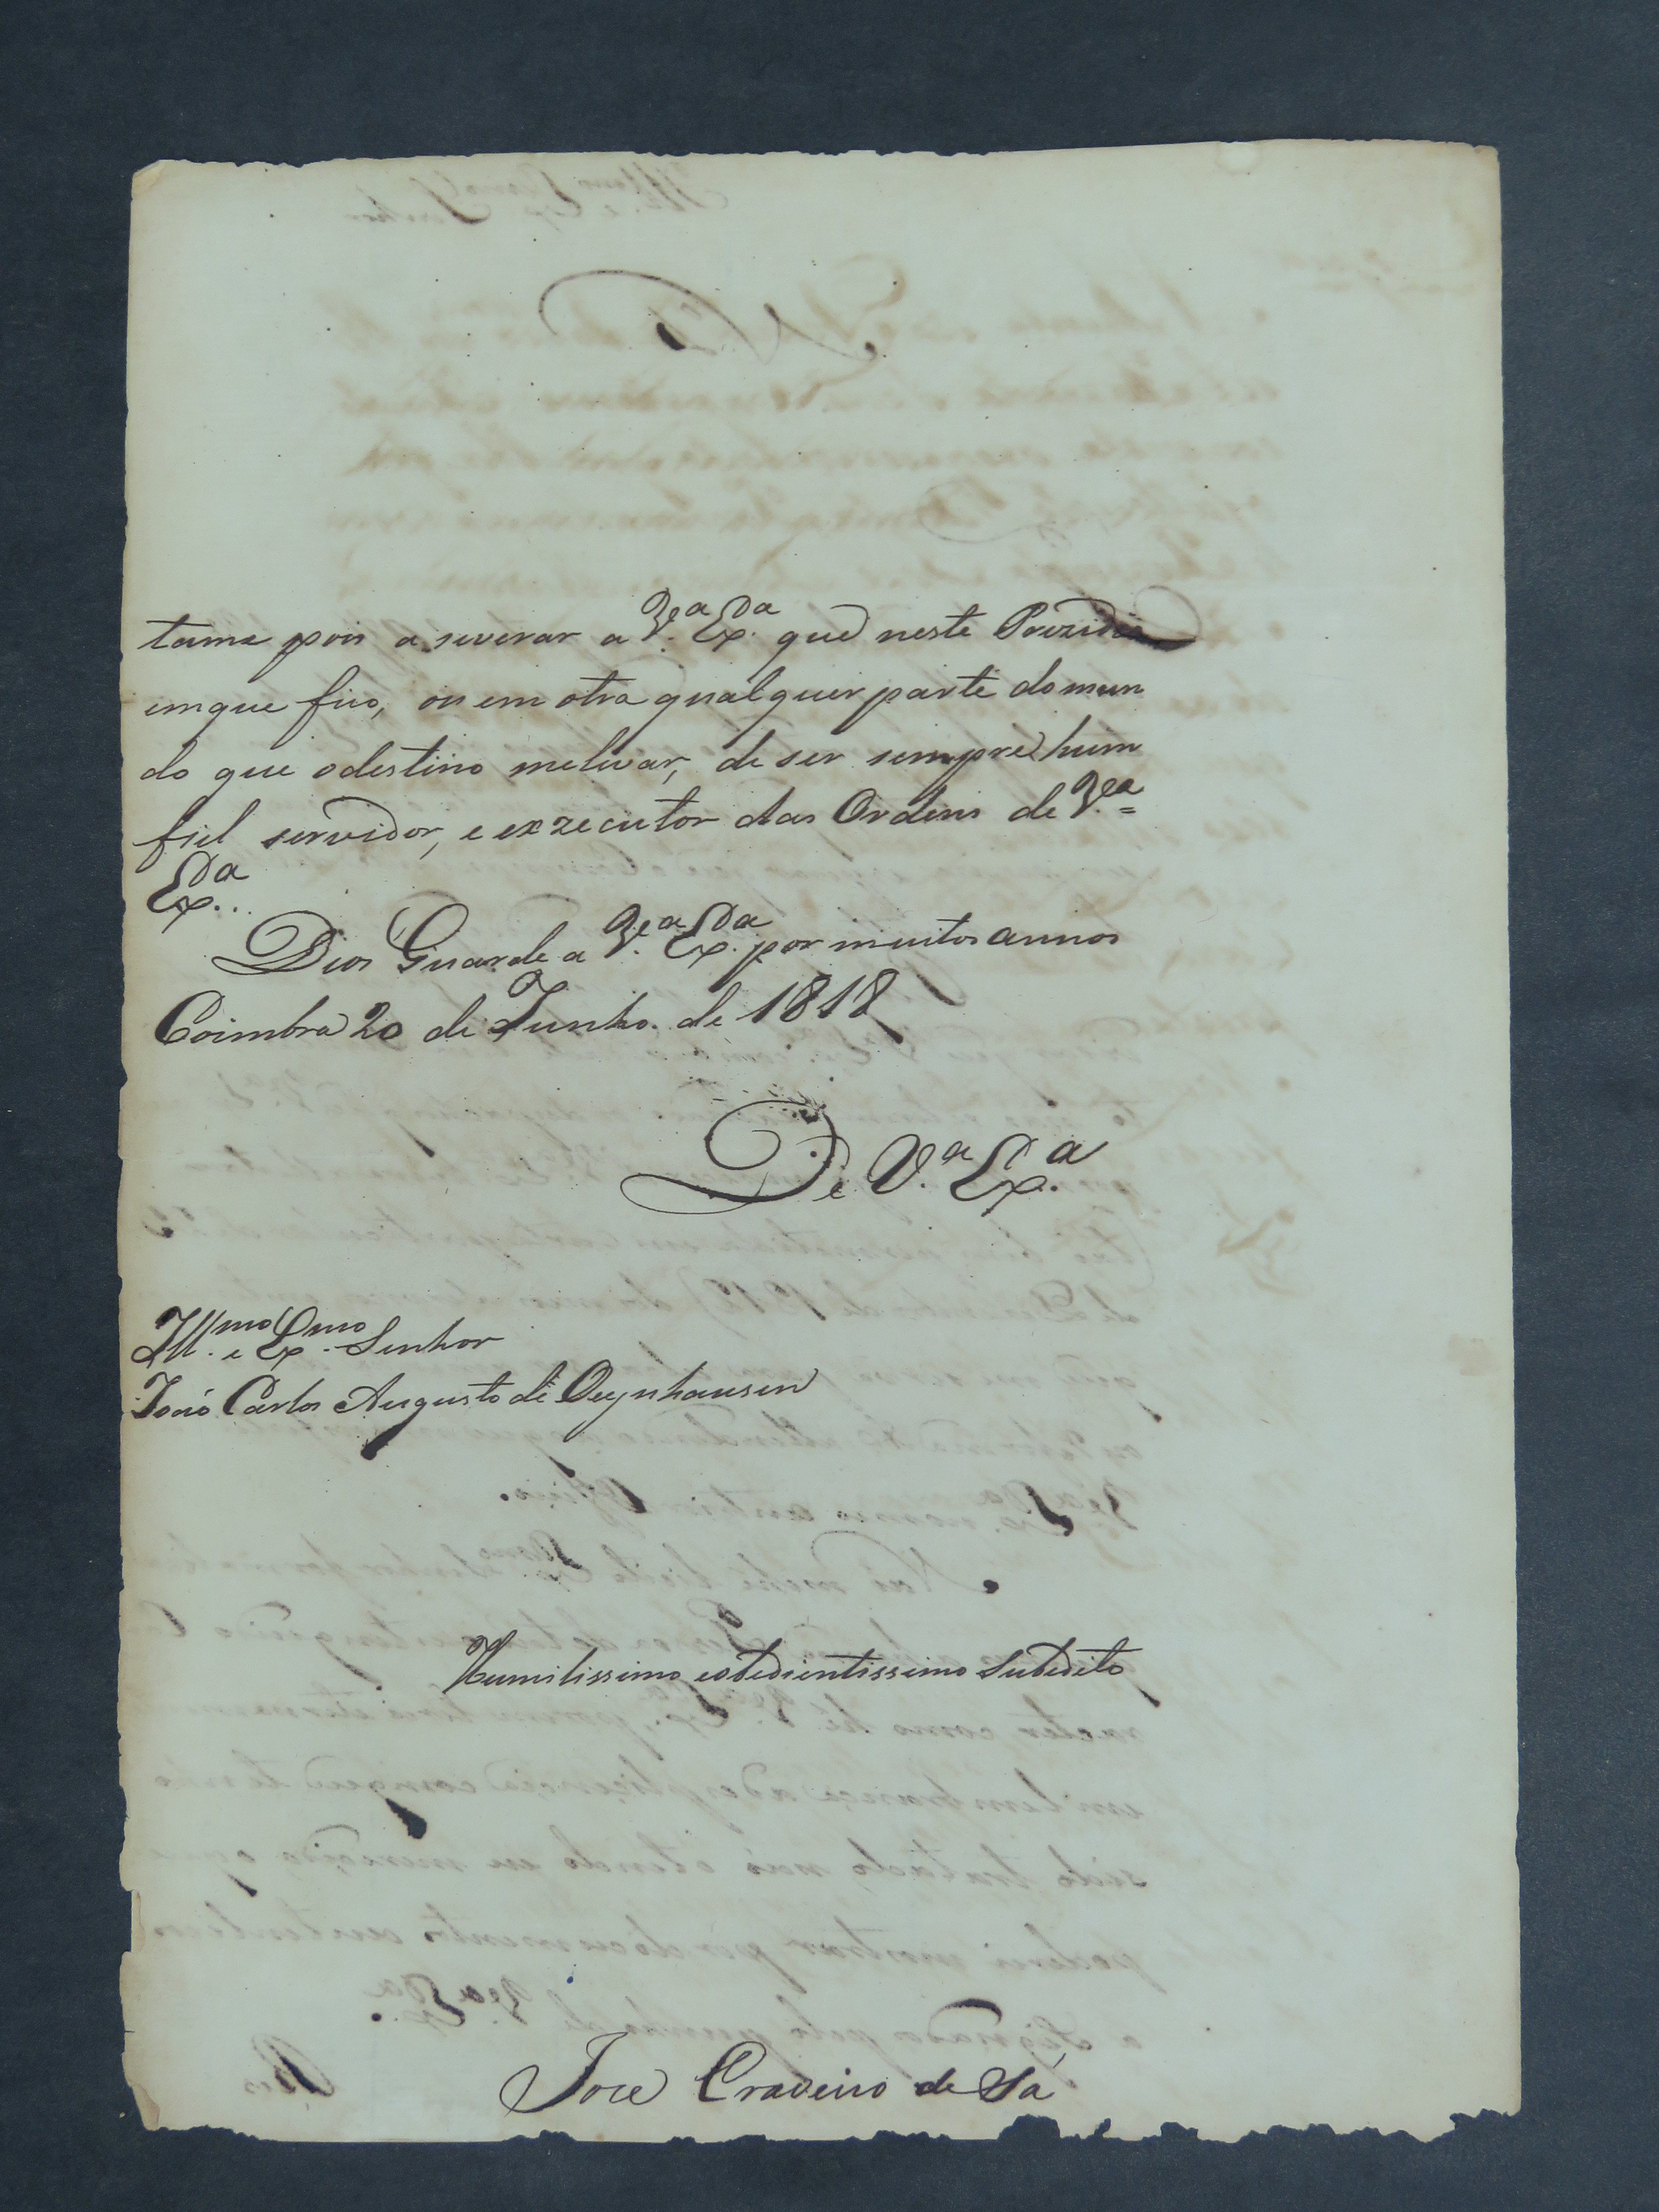 tame pois a severar a V.ª Ex.ª que neste Prezidio
emque fico, ou em otra qualquer parte do mun
do que o destino me levar, de ser sempre hum
fiel servidor, e exzecutor das Ordens de V.ª =
Ex.ª.
Deos Guarde a V.ª Ex.ª por muitos annos
Coimbra 20 de Junho de 1818
De V.ª Ex.ª
Ill.mo e Ex.mo Senhor
João Carlos Augusto de Oeynhausen
Humilissimo eobedientissimo Subedito
Joze Craveiro de Sá